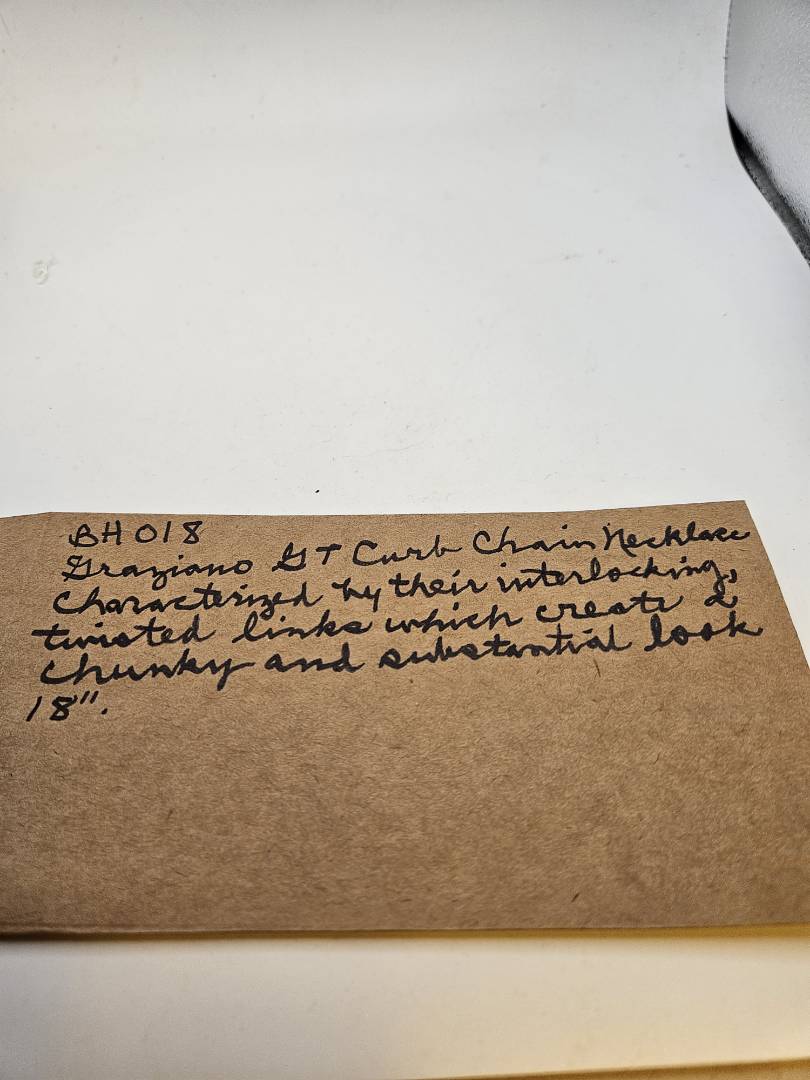 BH018
Graziano GT Curb Chain Necklace
Characterized by their interlocking,
twisted links which create a
chunky and substantial look
18".